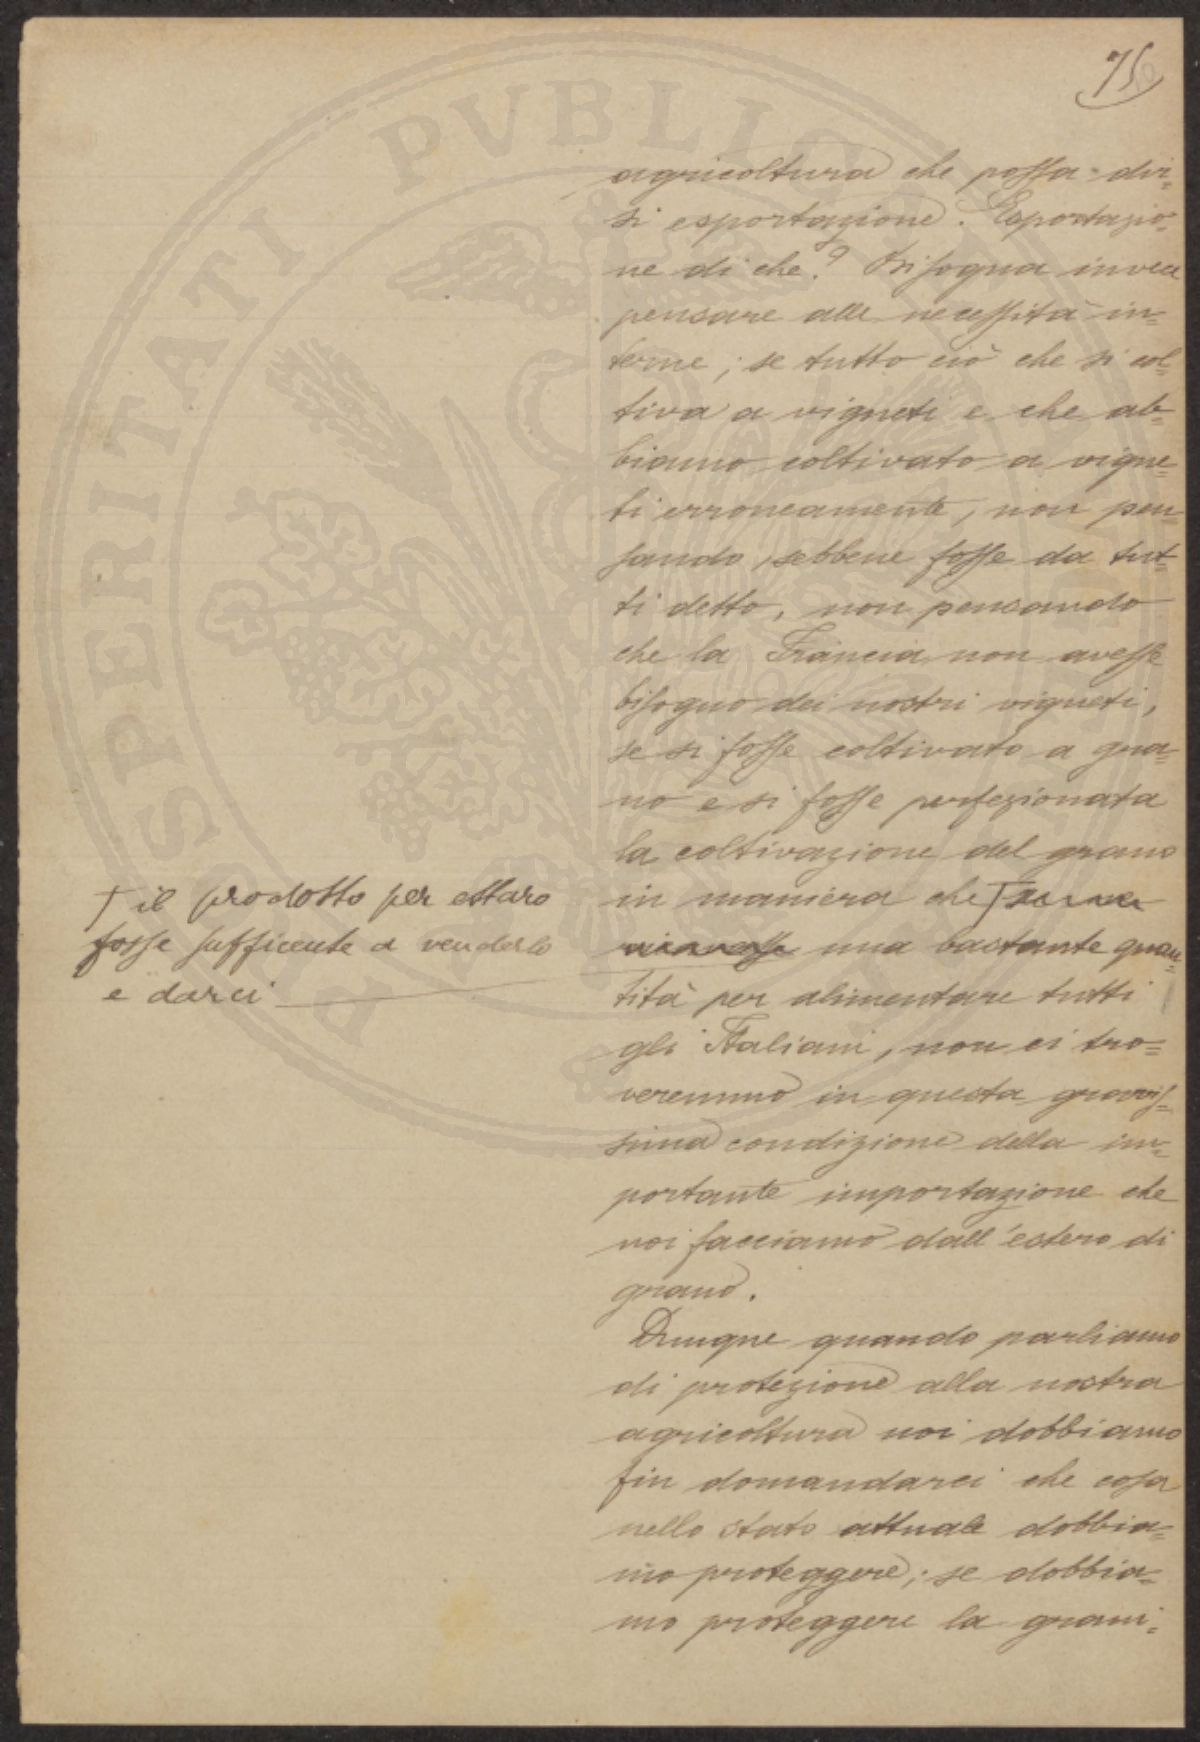 75
agricoltura che possa dir-
si esportazione. Esportazio-
ne di che? Bisogna invece
pensare alle necessità in-
terne; se tutto ciò che si col-
tiva a vigneti e che ab-
biamo coltivato a vigne-
ti erroneamente, non pen-
sando, sebbene fosse da tut-
ti detto, non pensando
che la Francia non avesse
bisogno dei nostri vigneti,
se si fosse coltivato a gra-
no e si fosse perfezionata
la coltivazione del grano
in maniera che
una bastante quan-
tità per alimentare tutti
gli Italiani, non ci tro-
veremmo in questa gravis-
sima condizione della im-
portante importazione che
noi facciamo dall'estero di
grano.
Dunque quando parliamo
di protezione alla nostra
agricoltura noi dobbiamo
fin domandarci che cosa
nello stato attuale dobbia-
mo proteggere; se dobbia-
mo proteggere la grani-
† il prodotto per ettaro
fosse sufficente a venderlo
e darci
PVBLICAE
PROSPERITATI